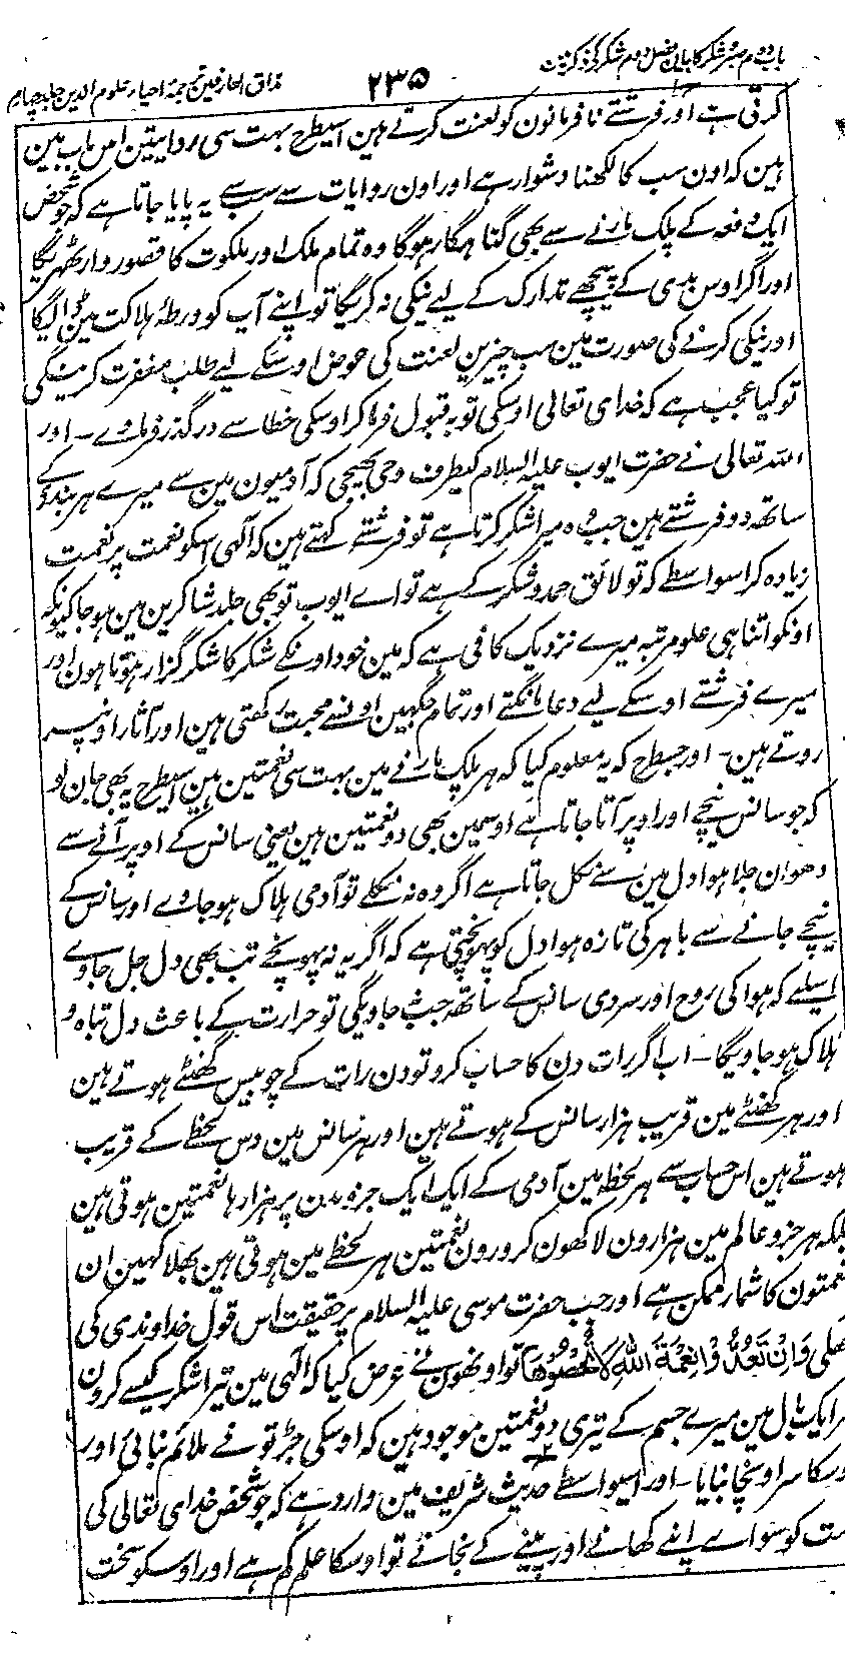 باب دوم صبر و شکر کا بیان فصل دوم شکر کی ذکر مین
۲۳۵
مذاق العارفین ترجمۂ احیاء علوم الدین جلد چہارم
کرتی ہے اور فرشتے نافرمانون کو لعنت کرتے ہین اسیطرح بہت سی روایتین اس باب مین
ہین کہ اون سب کا لکھنا دشوار ہے اور اون روایات سے سب سے یہ پایا جاتا ہے کہ جو شخص
ایک دفعہ کے پلک مارنے سے بھی گناہگار ہوگا وہ تمام ملک اور ملکوت کا قصور وار ٹھہریگا
اور اگر اوس بدی کے پیچھے تدارک کے لیے نیکی نہ کریگا تو اپنے آپ کو ورطۂ ہلاکت مین ڈالیگا
اور نیکی کرنے کی صورت مین سب چیزین لعنت کی عوض اوسکے لیے طلب مغفرت کرینگی
تو کیا عجب ہے کہ خدای تعالی اوسکی توبہ قبول فرما کر اوسکی خطا سے درگذر فرماوے ۔ اور
اللہ تعالی نے حضرت ایوب علیہ السلام کیطرف وحی بھیجی کہ آدمیون مین سے میرے ہر بندے کے
ساتھ دو فرشتے ہین جب وہ میرا شکر کرتا ہے تو فرشتے کہتے ہین کہ الٰہی اسکو نعمت پر نعمت
زیادہ کر اسواسطے کہ تو لائق حمد و شکر کے ہے تو اے ایوب تو بھی جلد شاکرین مین ہو جا کیونکہ
اونکو اتنا ہی علو مرتبہ میرے نزدیک کافی ہے کہ مین خود اونکے شکر کا شکر گزار ہوتا ہون اور
میرے فرشتے اوسکے لیے دعا مانگتے اور تمام جگہین اونسے محبت رکھتی ہین اور آثار اونپر
روتے ہین ۔ اور جسطرح کہ یہ معلوم کیا کہ ہر پلک مارنے مین بہت سی نعمتین ہین اسیطرح یہ بھی جان لو
کہ جو سانس نیچے اور اوپر آتا جاتا ہے اوسمین بھی دو نعمتین ہین یعنی سانس کے اوپر آنے سے
دھوان جلا ہوا دل مین سے نکل جاتا ہے اگر وہ نہ نکلے تو آدمی ہلاک ہو جاوے اور سانس کے
نیچے جانے سے باہر کی تازہ ہوا دل کو پہونچتی ہے کہ اگر یہ نہ پہونچے تب بھی دل جل جاوے
اسلیے کہ ہوا کی روح اور سردی سانس کے ساتھ جب جاویگی تو حرارت کے باعث دل تباہ و
ہلاک ہو جاویگا ۔ اب اگر رات دن کا حساب کرو تو دن رات کے چوبیس گھنٹے ہوتے ہین
اور ہر گھنٹے مین قریب ہزار سانس کے ہوتے ہین اور ہر سانس مین دس لحظے کے قریب
ہوتے ہین اس حساب سے ہر لحظہ مین آدمی کے ایک ایک جزو بدن پر ہزارہا نعمتین ہوتی ہین
بلکہ ہر جزو عالم مین ہزارون لاکھون کرورون نعمتین ہر لحظے مین ہوتی ہین بھلا کہین ان
نعمتون کا شمار ممکن ہے اور جب حضرت موسی علیہ السلام پر حقیقت اس قول خداوندی کی
کھلی وَاِنْ تَعُدُّوْا نِعْمَۃَ اللّٰہِ لَا تُحْصُوْھَا تو اونھون نے عرض کیا کہ الٰہی مین تیرا شکر کیسے کرون
ہر ایک بال مین میرے جسم کے تیری دو نعمتین موجود ہین کہ اوسکی جڑ تو نے ملائم بنائی اور
اوسکا سر اونچا بنایا ۔ اور اسیواسطے حدیث شریف مین وارد ہے کہ جو شخص خدای تعالی کی
نعمت کو سواے اپنے کھانے اور پینے کے نجانے تو اوسکا علم کم ہے اور اوسکو سخت